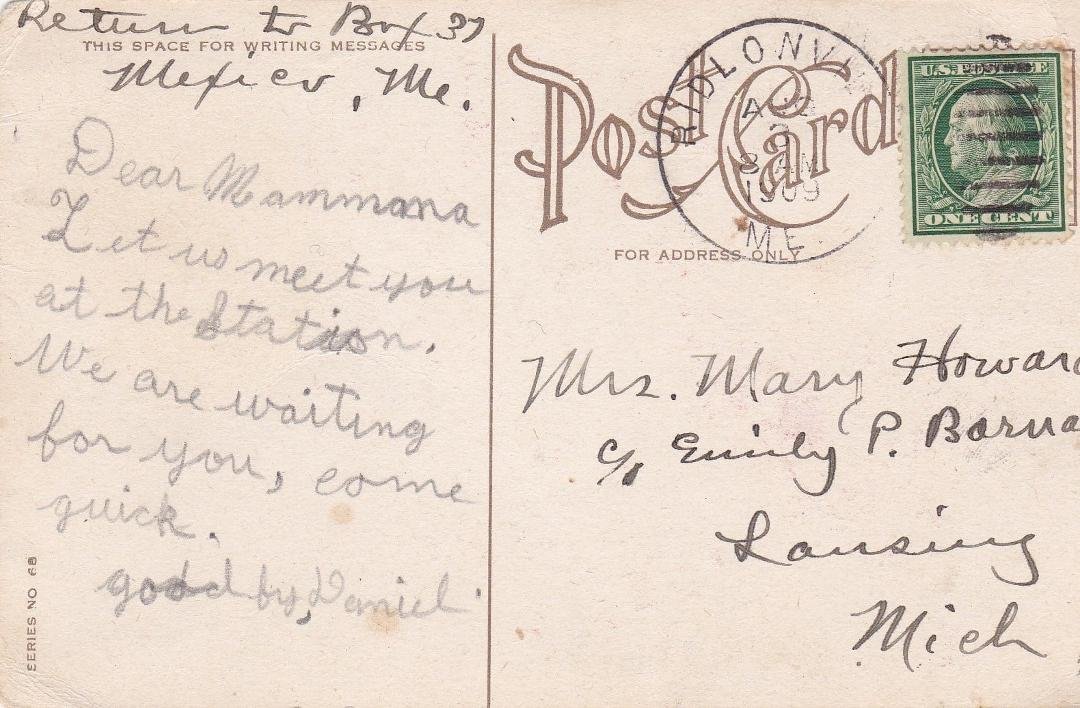 Return to Box 37
THIS SPACE FOR WRITING MESSAGES
Mexico, Me.
Dear Mammana
Let us meet you
at the Station.
We are waiting
for you, come
quick.
good by, Daniel.
SERIES NO 68
Post Card
FOR ADDRESS ONLY
RIDLONV
3
8 AM
1909
ME.
U.S. POSTAGE
ONE CENT
Mrs. Mary Howard
c/o Emily P. Barna
Lansing
Mich